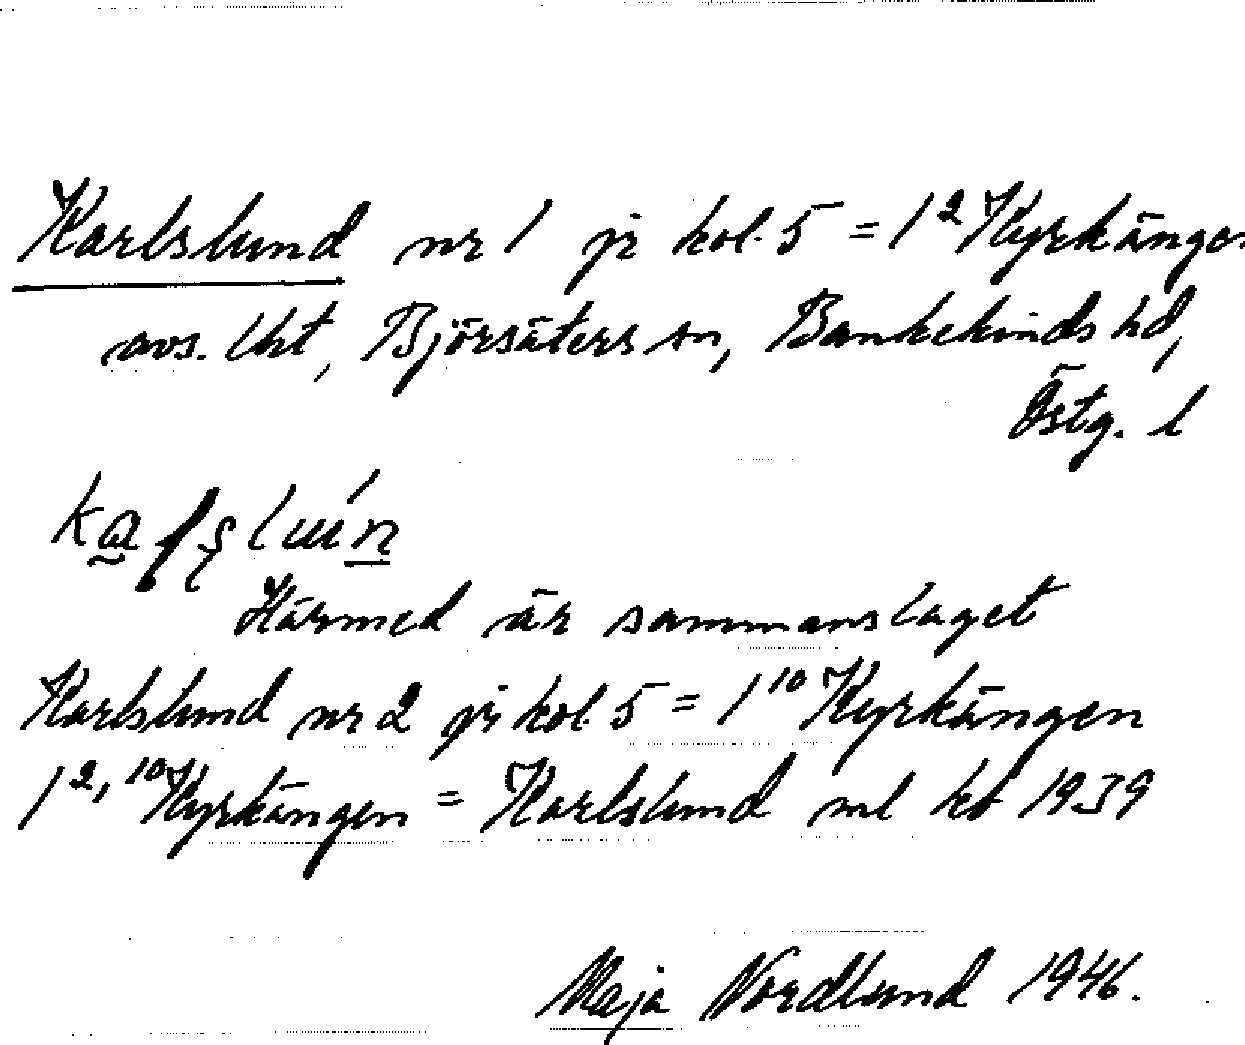 Karlslund nr 1 på kol. 5 = 1² Kyrkänge.
avs. lht, Björsäters sn, Bankekinds hd,
Östg. l
Härmed är sammanslaget
Karlslund nr 2 på kol. 5 = 1¹⁰ Kyrkängen
1²,¹⁰ Kyrkängen = Karlslund ml kt 1939
Maja Nordlund 1946.